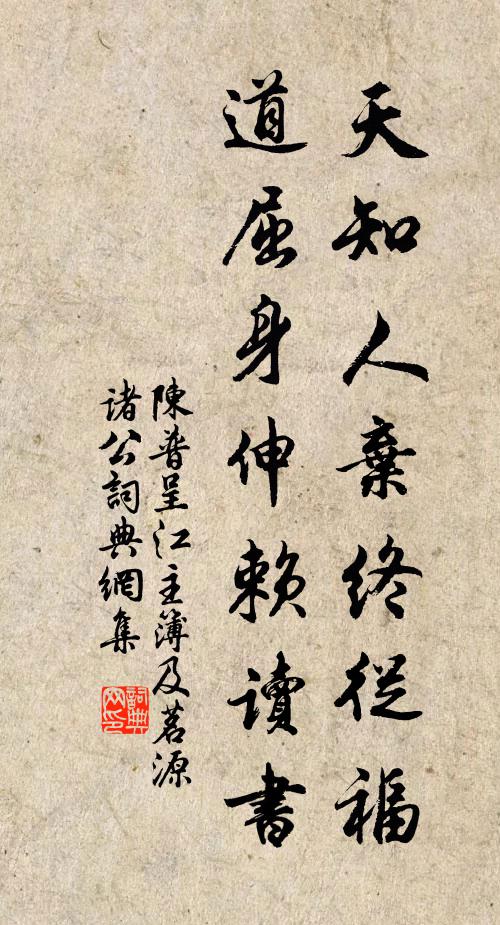 天知人棄終從福
道屈身伸賴讀書
陳普呈江主簿及茗源
諸公詞典網集
詞典
网印